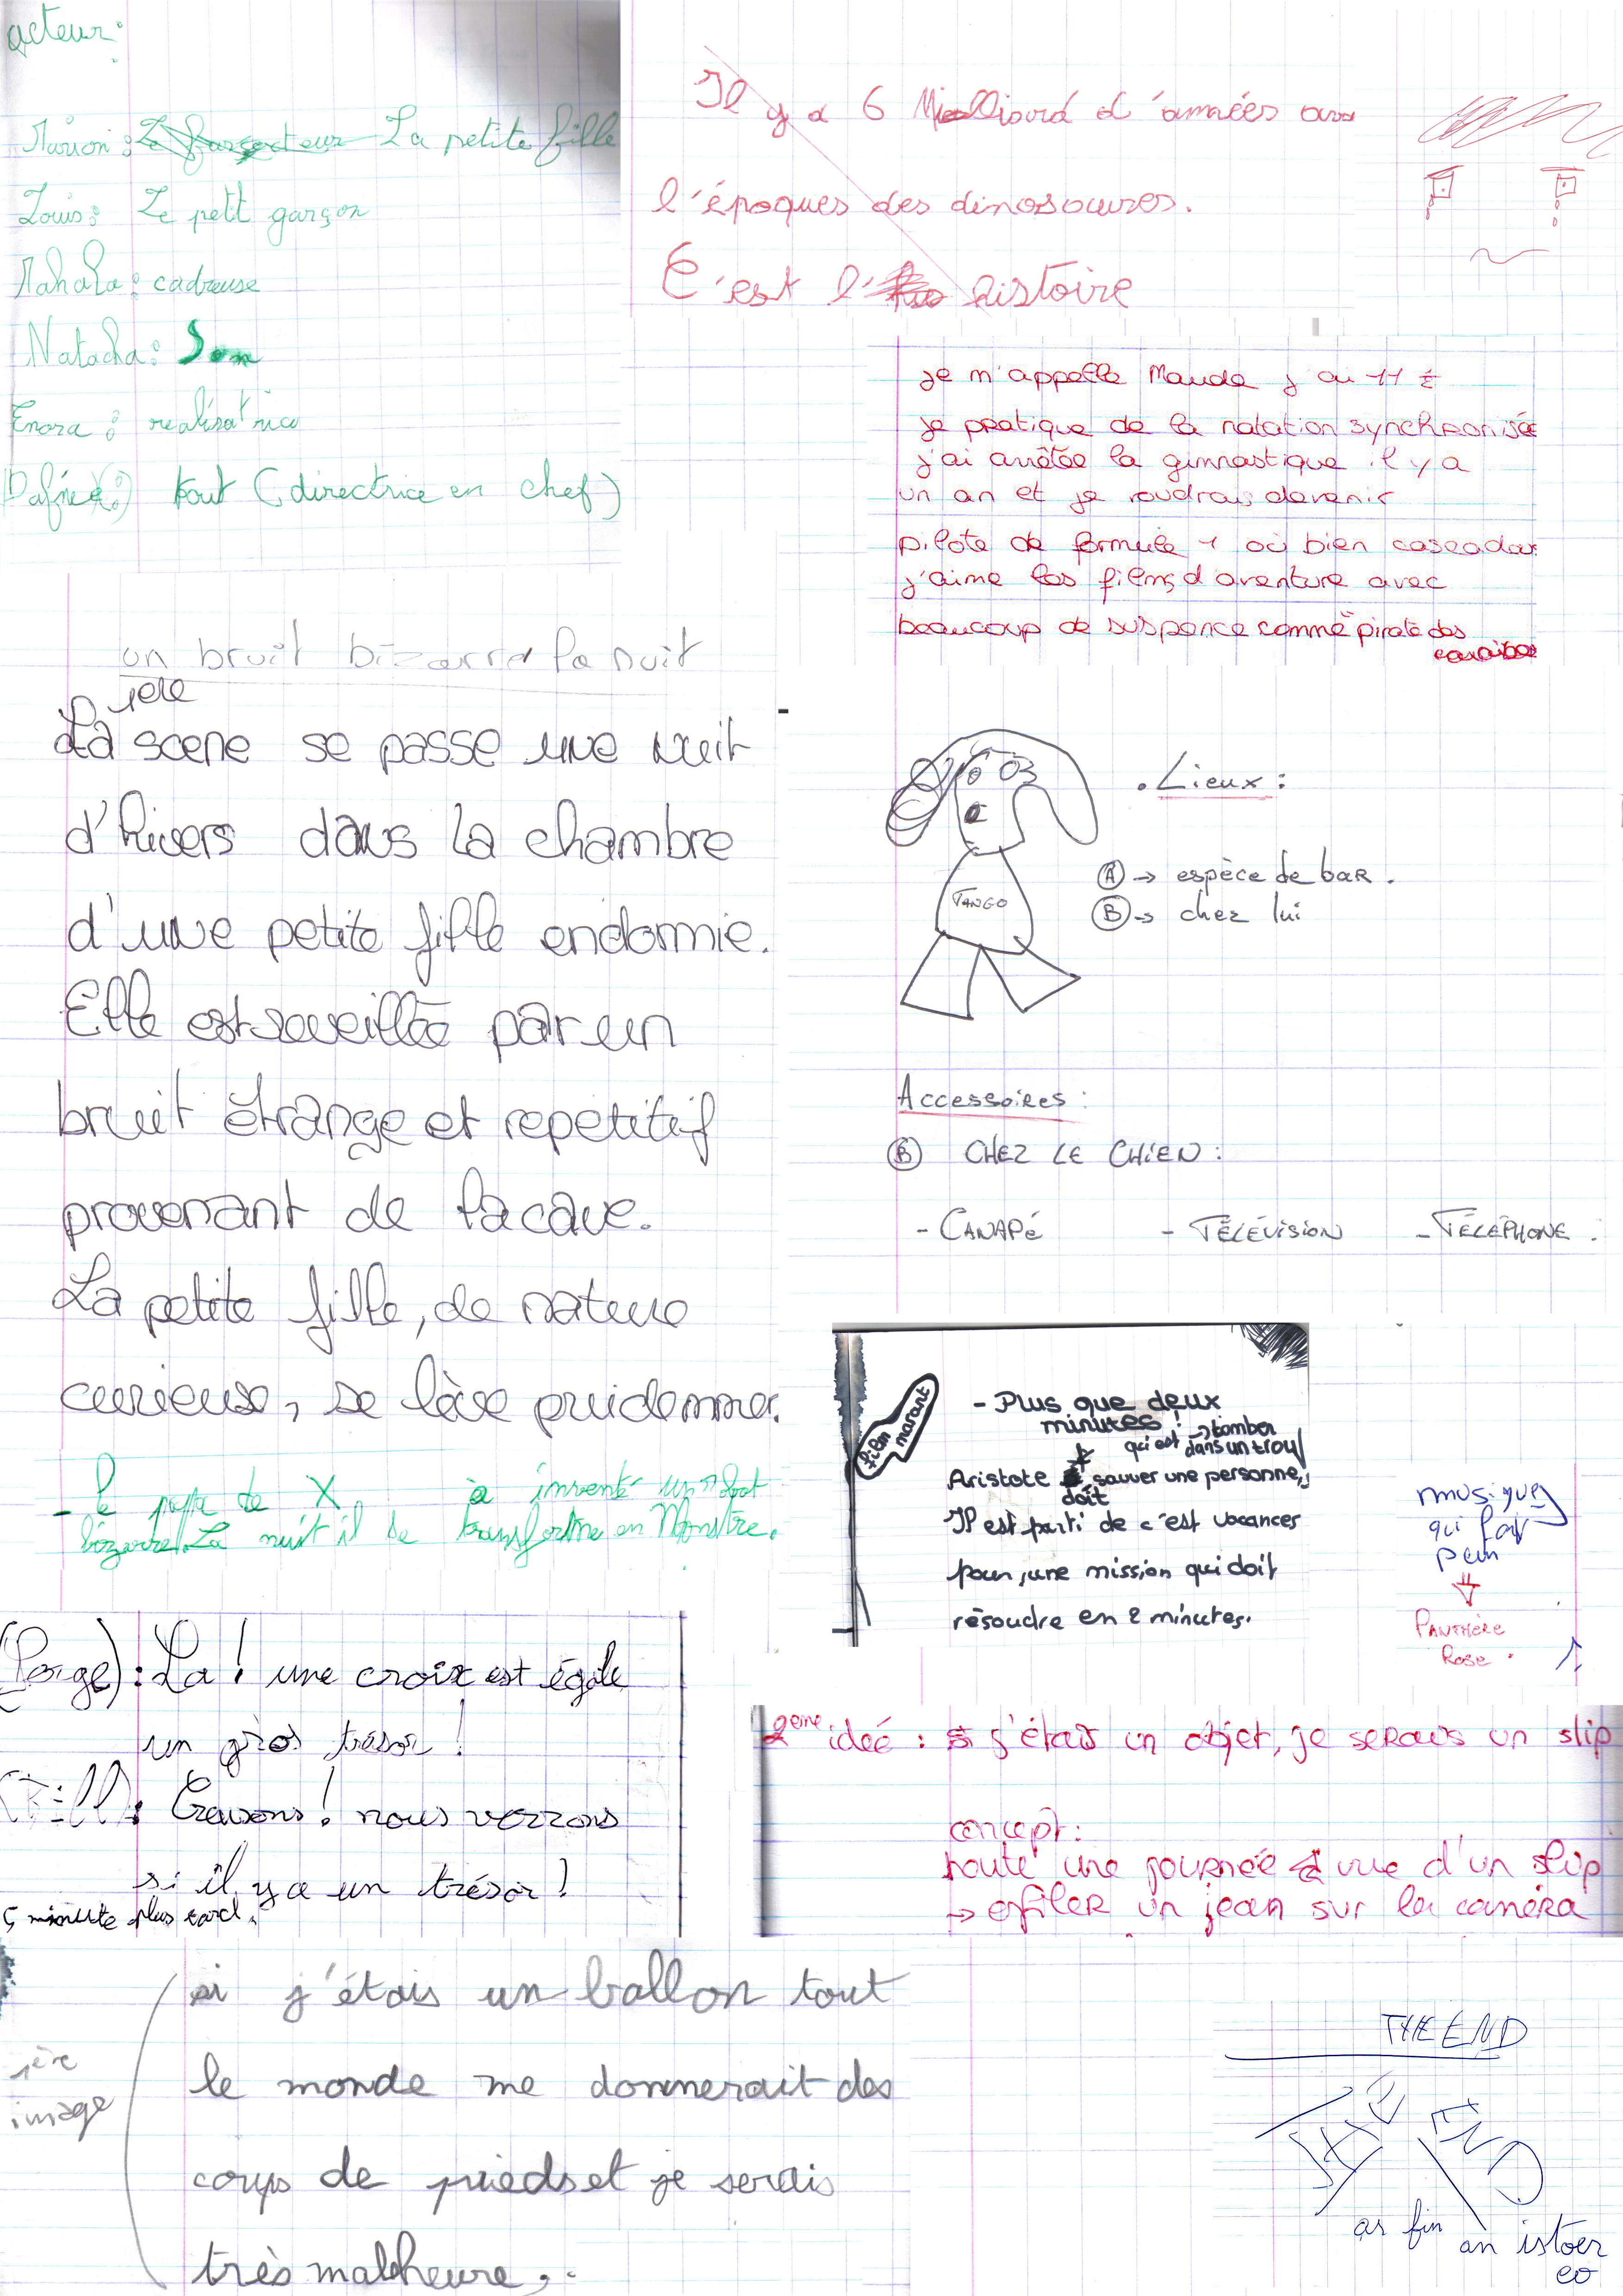 acteur:
Marion : La petite fille
Louis : Le petit garçon
cadreuse
Natacha : Son
Enora : realisatrice
tout (directrice en chef)
Il y a 6 Milliard d'années
l'époques des dinosoures.
C'est l' histoire
je m'appelle Maude j'ai 11
je pratique de la natation synchronisée
j'ai arrêtée la gimnastique il y a
un an et je voudrais devenir
pilote de formule 1 où bien cascadar
j'aime les films d'aventure avec
beaucoup de suspence comme pirate des
caraibes
un bruit bizarre la nuit
La scene se passe une nuit
d'hivers dans la chambre
d'une petite fille endormie.
Elle est reveillée par un
bruit étrange et repetitif
provenant de la cave.
La petite fille, de nature
curieuse, se lève prudemmer.
- le papa de X a inventé un robot
bizarre. La nuit il se transforme en Monstre.
TANGO
. Lieux :
(A) → espèce de bar.
(B) → chez lui
Accessoires :
(B) CHEZ LE CHIEN :
- CANAPé - TÉLÉVISION - TÉLÉPHONE.
film marant
- Plus que deux
minutes !
→ tomber
qui est dans un trou
Aristote doit sauver une personne,
Il est parti de c'est vacances
pour, une mission qui doit
résoudre en 2 minutes.
musique
qui fait
peur
PANTHÈRE
Rose
: La ! une croix est égale
un gros trésor !
(Bill) : Creusons ! nous verrons
si il y a un trésor !
5 minute plus tard.
2eme ideé : si j'étais un objet, je serais un slip
concept :
toute une journée vue d'un slip
→ enfiler un jean sur la caméra
1ère
image
si j'étais un ballon tout
le monde me donnerait des
coups de pieds et je serais
très malheure
THE END
THE END
fin
an istoer